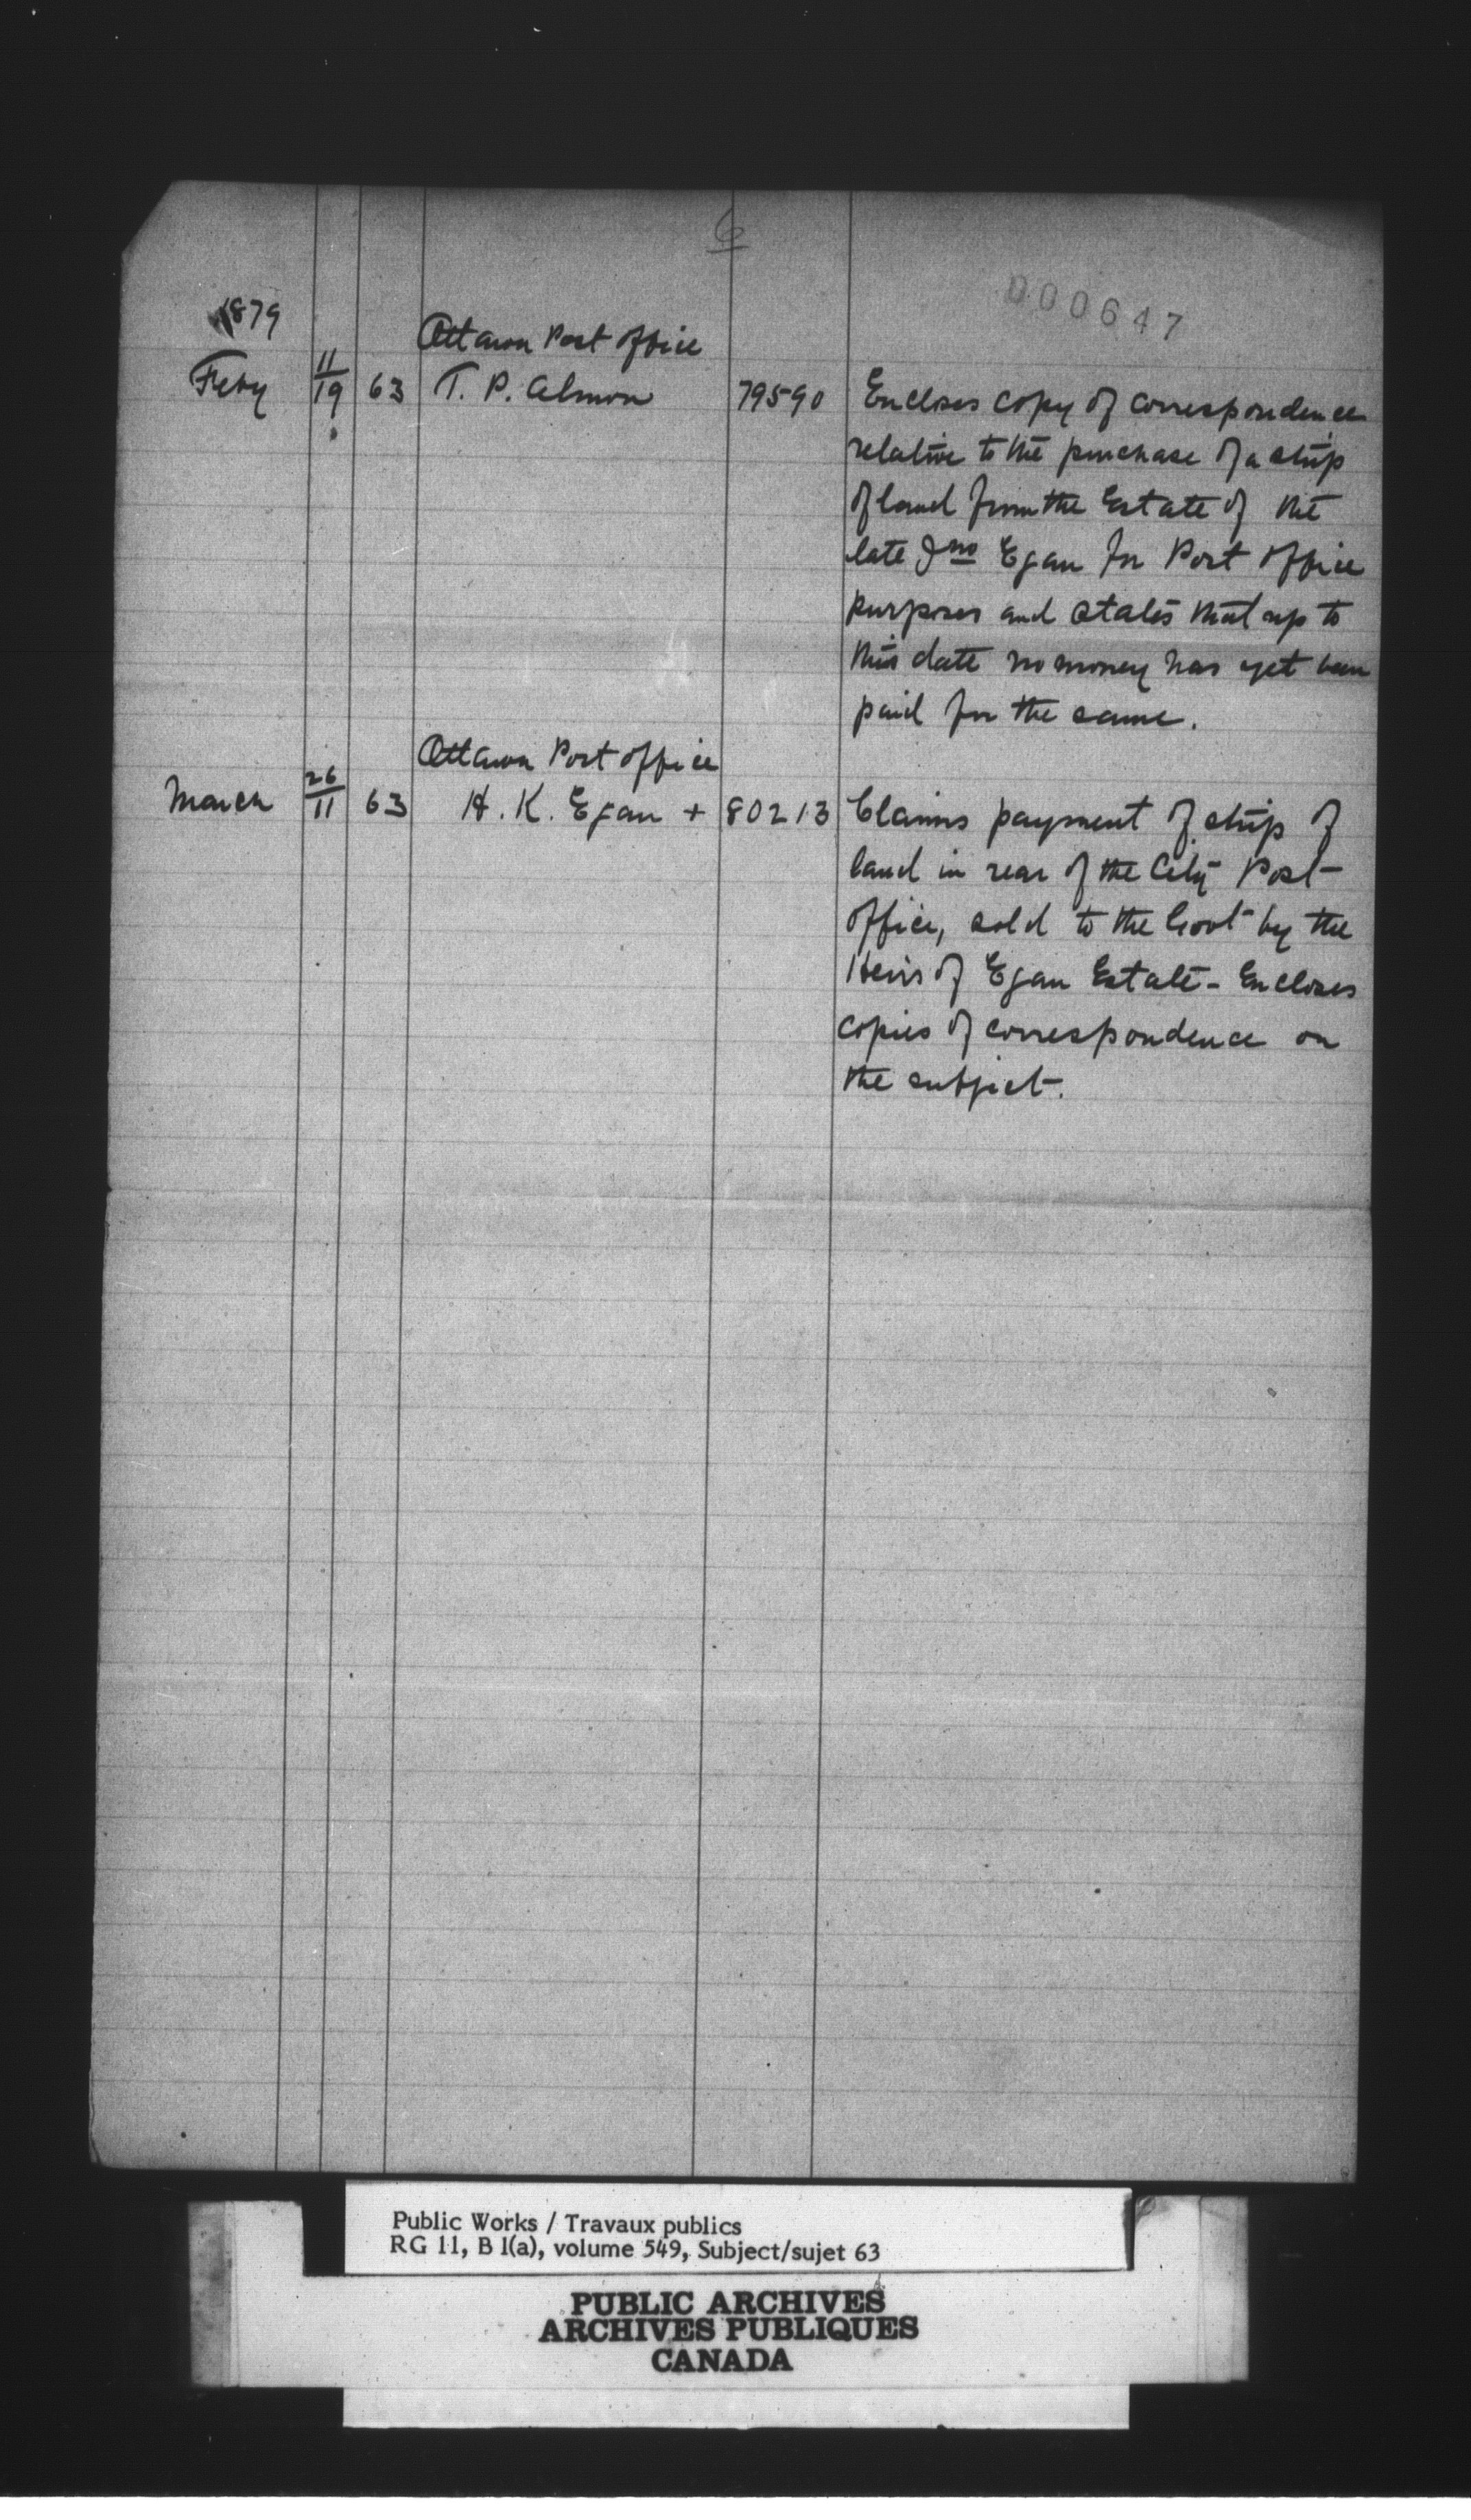 6
000647
1879
Ottawa Post Office
Feby 11/19 63 T. P. Almon 79590 Encloses copy of correspondence
relative to the purchase of a strip
of land from the Estate of the
late Jno Egan for Post Office
purposes and states that up to
this date no money has yet been
paid for the same.
Ottawa Post Office
March 26/11 63 H. K. Egan + 80213 Claims payment of strip of
land in rear of the City Post
Office, sold to the Govt by the
Heirs of Egan Estate - Encloses
copies of correspondence on
the subject.
Public Works / Travaux publics
RG 11, B 1(a), volume 549, Subject/sujet 63
PUBLIC ARCHIVES
ARCHIVES PUBLIQUES
CANADA